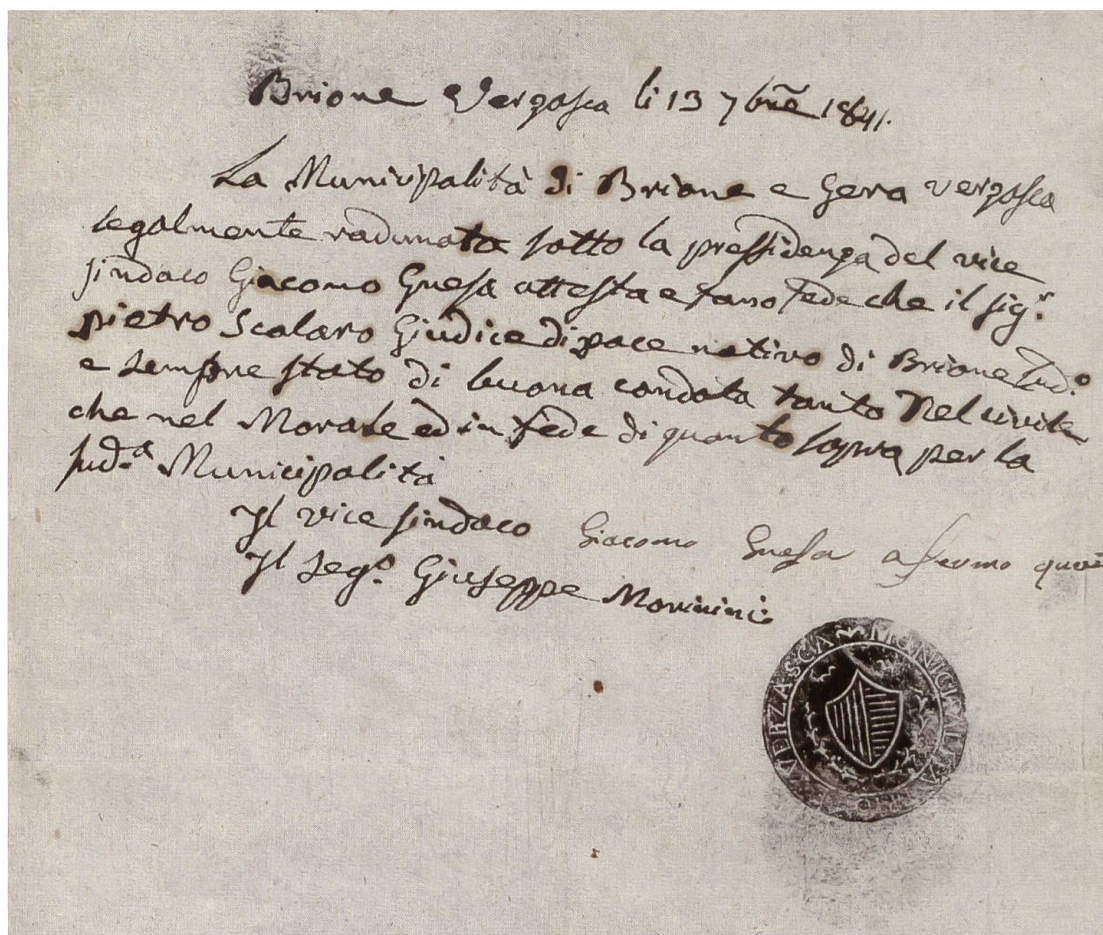 Brione Vergasca li 13 7brē 1841.
La Municipalità di Brione e Gera vergasca
legalmente radunata sotto la pressidenza del vice
sindaco Giacomo Gnesa attesta e fano fede che il sig.r
pietro Scalaro Giudice di pace nativo di Brione sud.o
e sempre stato di buona condota tanto Nel civile
che nel Morale ed in fede di quanto sopra per la
sud.a Municipalità
Il vice sindaco Giacomo Gnesa afermo
Il Seg.o Giuseppe Morinini
VERZASCA MUNICIPALITA